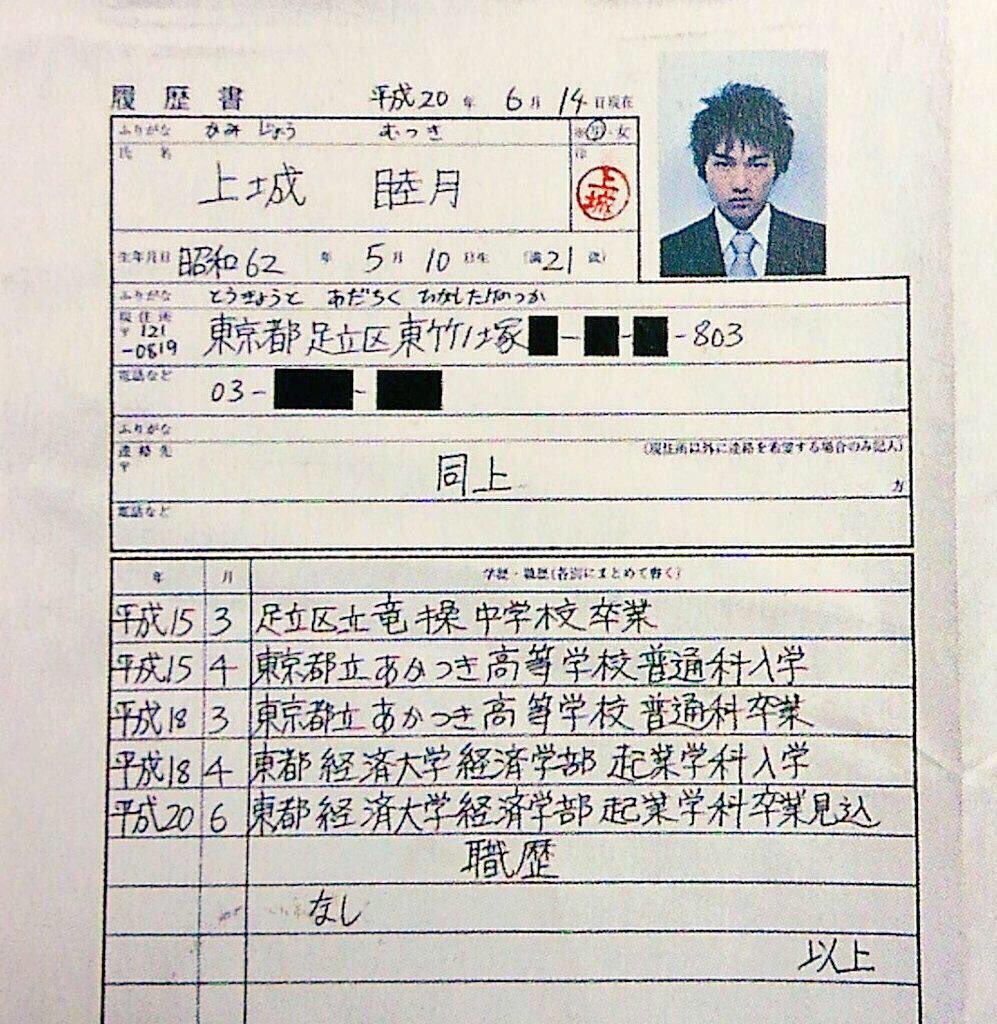 履歴書 平成20年 6月 14日現在
ふりがな かみ じょう むつき ※男・女
氏 名 上城 睦月 印 上城
生年月日 昭和62年 5月 10日生 (満21歳)
ふりがな とうきょうと あだちく ひがしたけのつか
現住所 東京都足立区東竹ノ塚 - - -803
〒121
-0819
電話など 03- -
ふりがな
連絡先 (現住所以外に連絡を希望する場合のみ記入)
〒 同上 方
電話など
年 月 学歴・職歴(各別にまとめて書く)
平成15 3 足立区立竜操中学校卒業
平成15 4 東京都立あかつき高等学校普通科入学
平成18 3 東京都立あかつき高等学校普通科卒業
平成18 4 東都経済大学経済学部 起業学科入学
平成20 6 東都経済大学経済学部 起業学科卒業見込
職歴
なし
以上